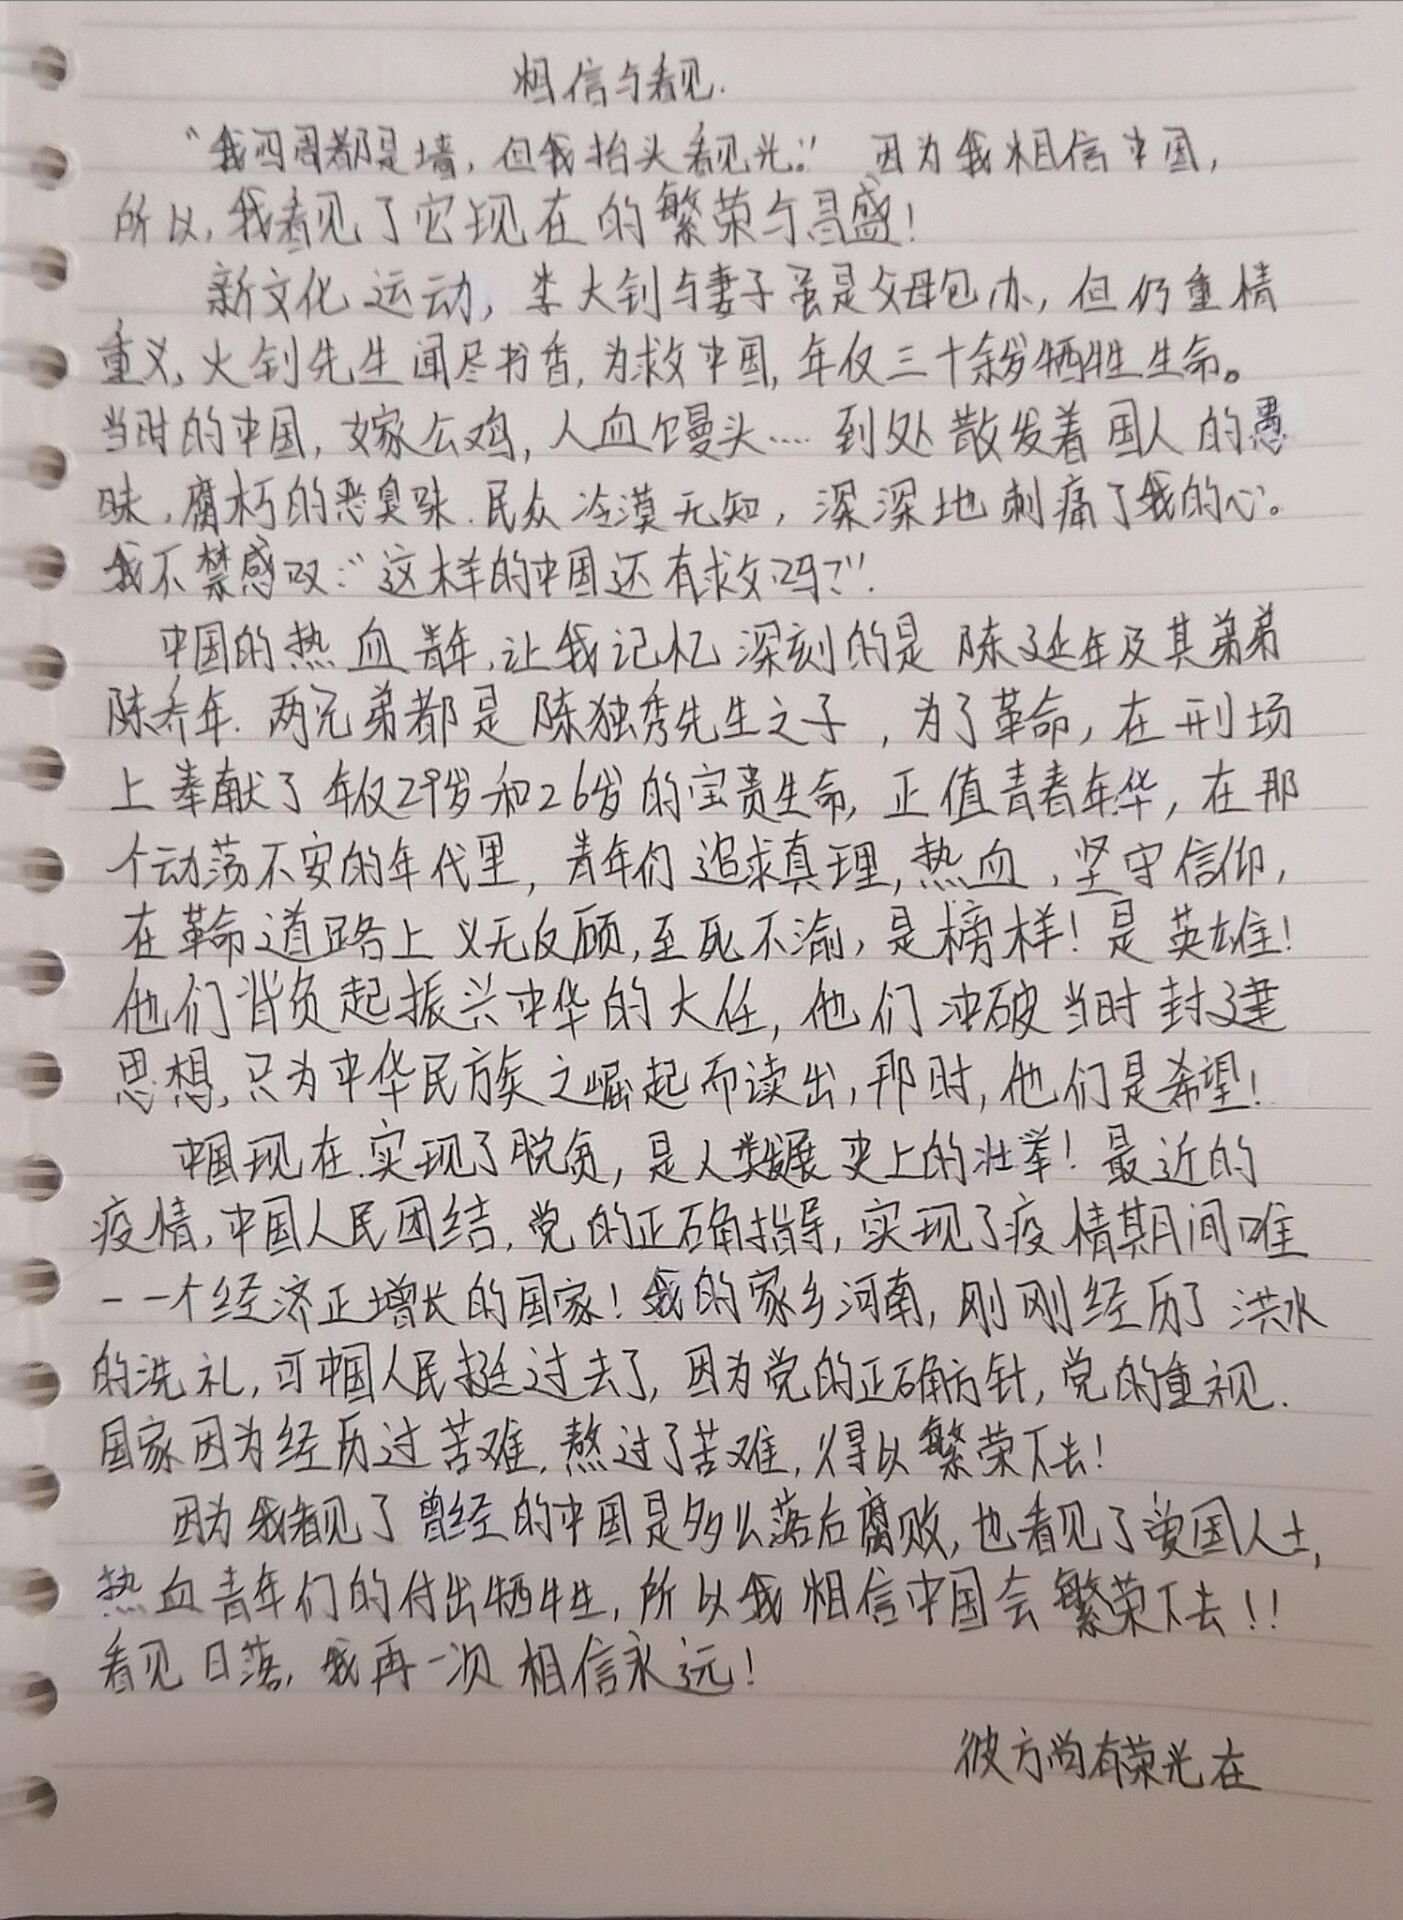 相信与看见.
“我四周都是墙，但我抬头看见光。” 因为我相信中国，
所以，我看见了它现在的繁荣与昌盛！
新文化运动，李大钊与妻子虽是父母包办，但仍重情
重义，大钊先生闻尽书香，为救中国，年仅三十余岁牺牲生命。
当时的中国，嫁公鸡，人血馒头.... 到处散发着国人的愚
昧，腐朽的恶臭味.民众冷漠无知，深深地刺痛了我的心。
我不禁感叹：“这样的中国还有救吗？”.
中国的热血青年，让我记忆深刻的是陈延年及其弟弟
陈乔年.两兄弟都是陈独秀先生之子，为了革命，在刑场
上奉献了年仅29岁和26岁的宝贵生命，正值青春年华，在那
个动荡不安的年代里，青年们追求真理，热血，坚守信仰，
在革命道路上义无反顾，至死不渝，是榜样！是英雄！
他们背负起振兴中华的大任，他们冲破当时封建
思想，只为中华民族之崛起而读出，那时，他们是希望！
中国现在.实现了脱贫，是人类发展史上的壮举！最近的
疫情，中国人民团结，党的正确指导，实现了疫情期间唯
一一个经济正增长的国家！我的家乡河南，刚刚经历了洪水
的洗礼，可中国人民挺过去了，因为党的正确方针，党的重视.
国家因为经历过苦难，熬过了苦难，得以繁荣下去！
因为我看见了曾经的中国是多么落后腐败，也看见了爱国人士，
热血青年们的付出牺牲，所以我相信中国会繁荣下去！！
看见日落，我再一次相信永远！
彼方尚有荣光在